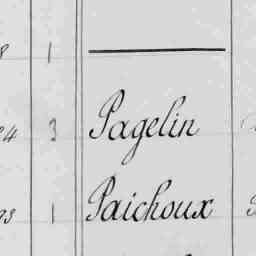 8 1
24 3 Pagelin
93 1 Paichoux